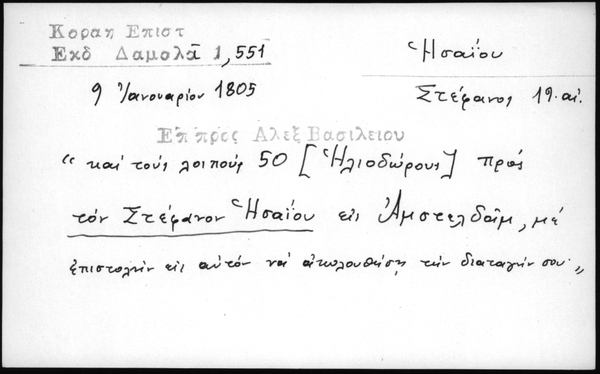 Κοραη Επιστ
Εκδ Δαμαλᾶ 1,551
Ἡσαΐου
9 Ἰανουαρίου 1805
Στέφανος 19. αἰ.
Επ προς Αλεξ Βασιλειου
“ καί τούς λοιπούς 50 [Ἡλιοδώρους] πρός
τόν Στέφανον Ἡσαΐου εἰς Ἀμστελδαῖμ, μέ
ἐπιστολήν εἰς αὐτόν νά ἀκολουθήσῃ τήν διαταγήν σου „